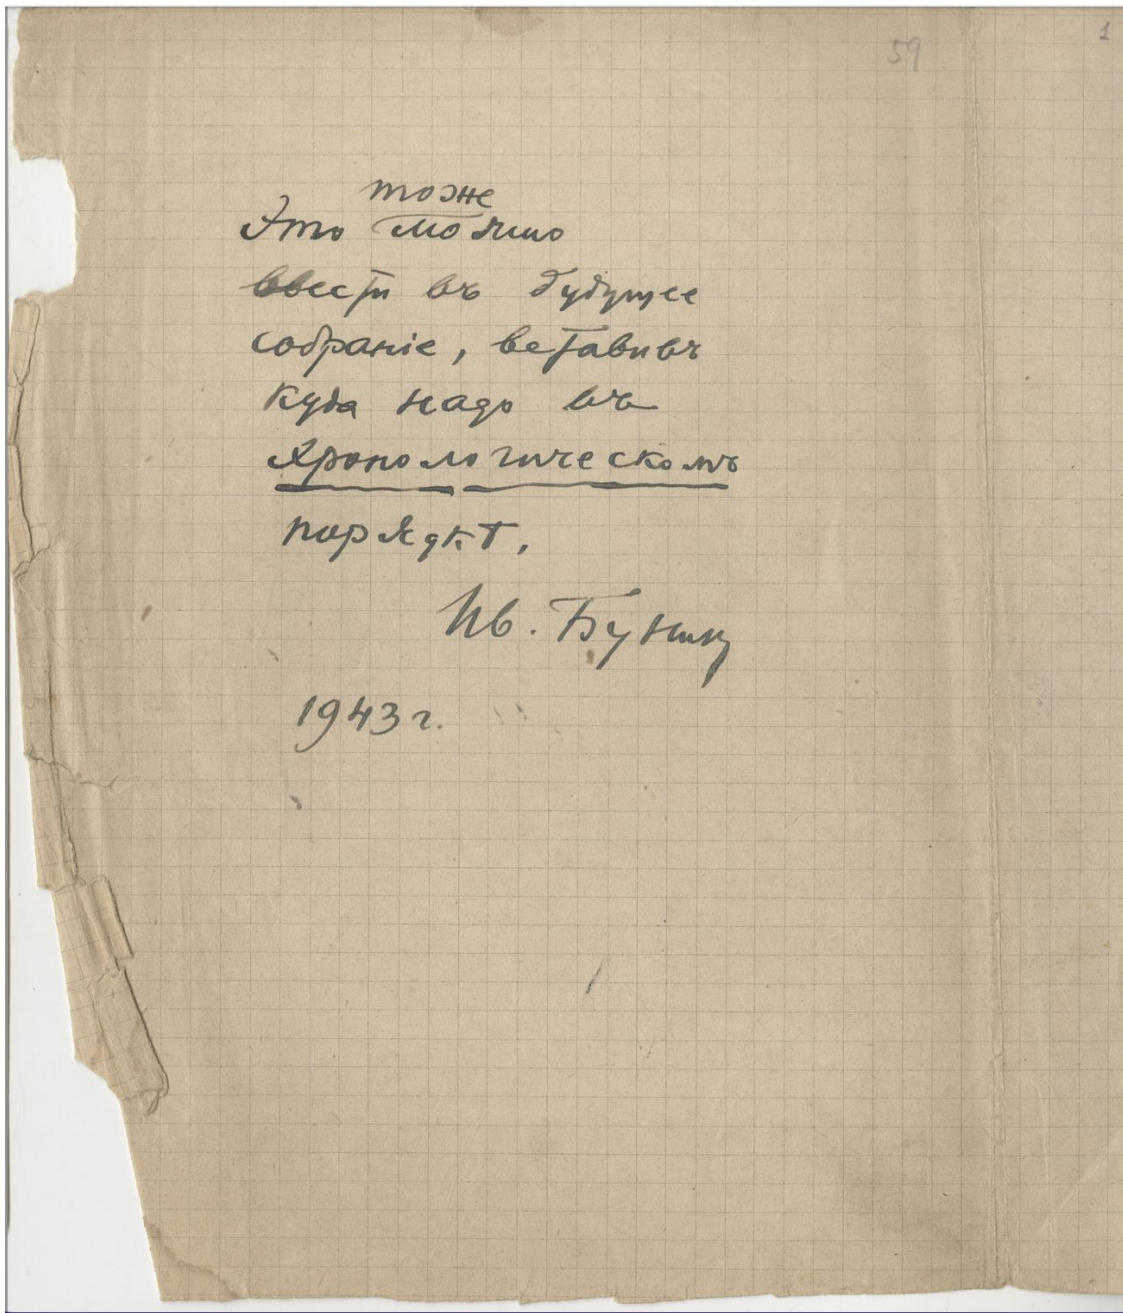 59
1
тоже
Это можно
ввести въ будущее
собранiе, вставивъ
куда надо въ
хронологическомъ
порядкѣ.
Ив. Бунин
1943 г.